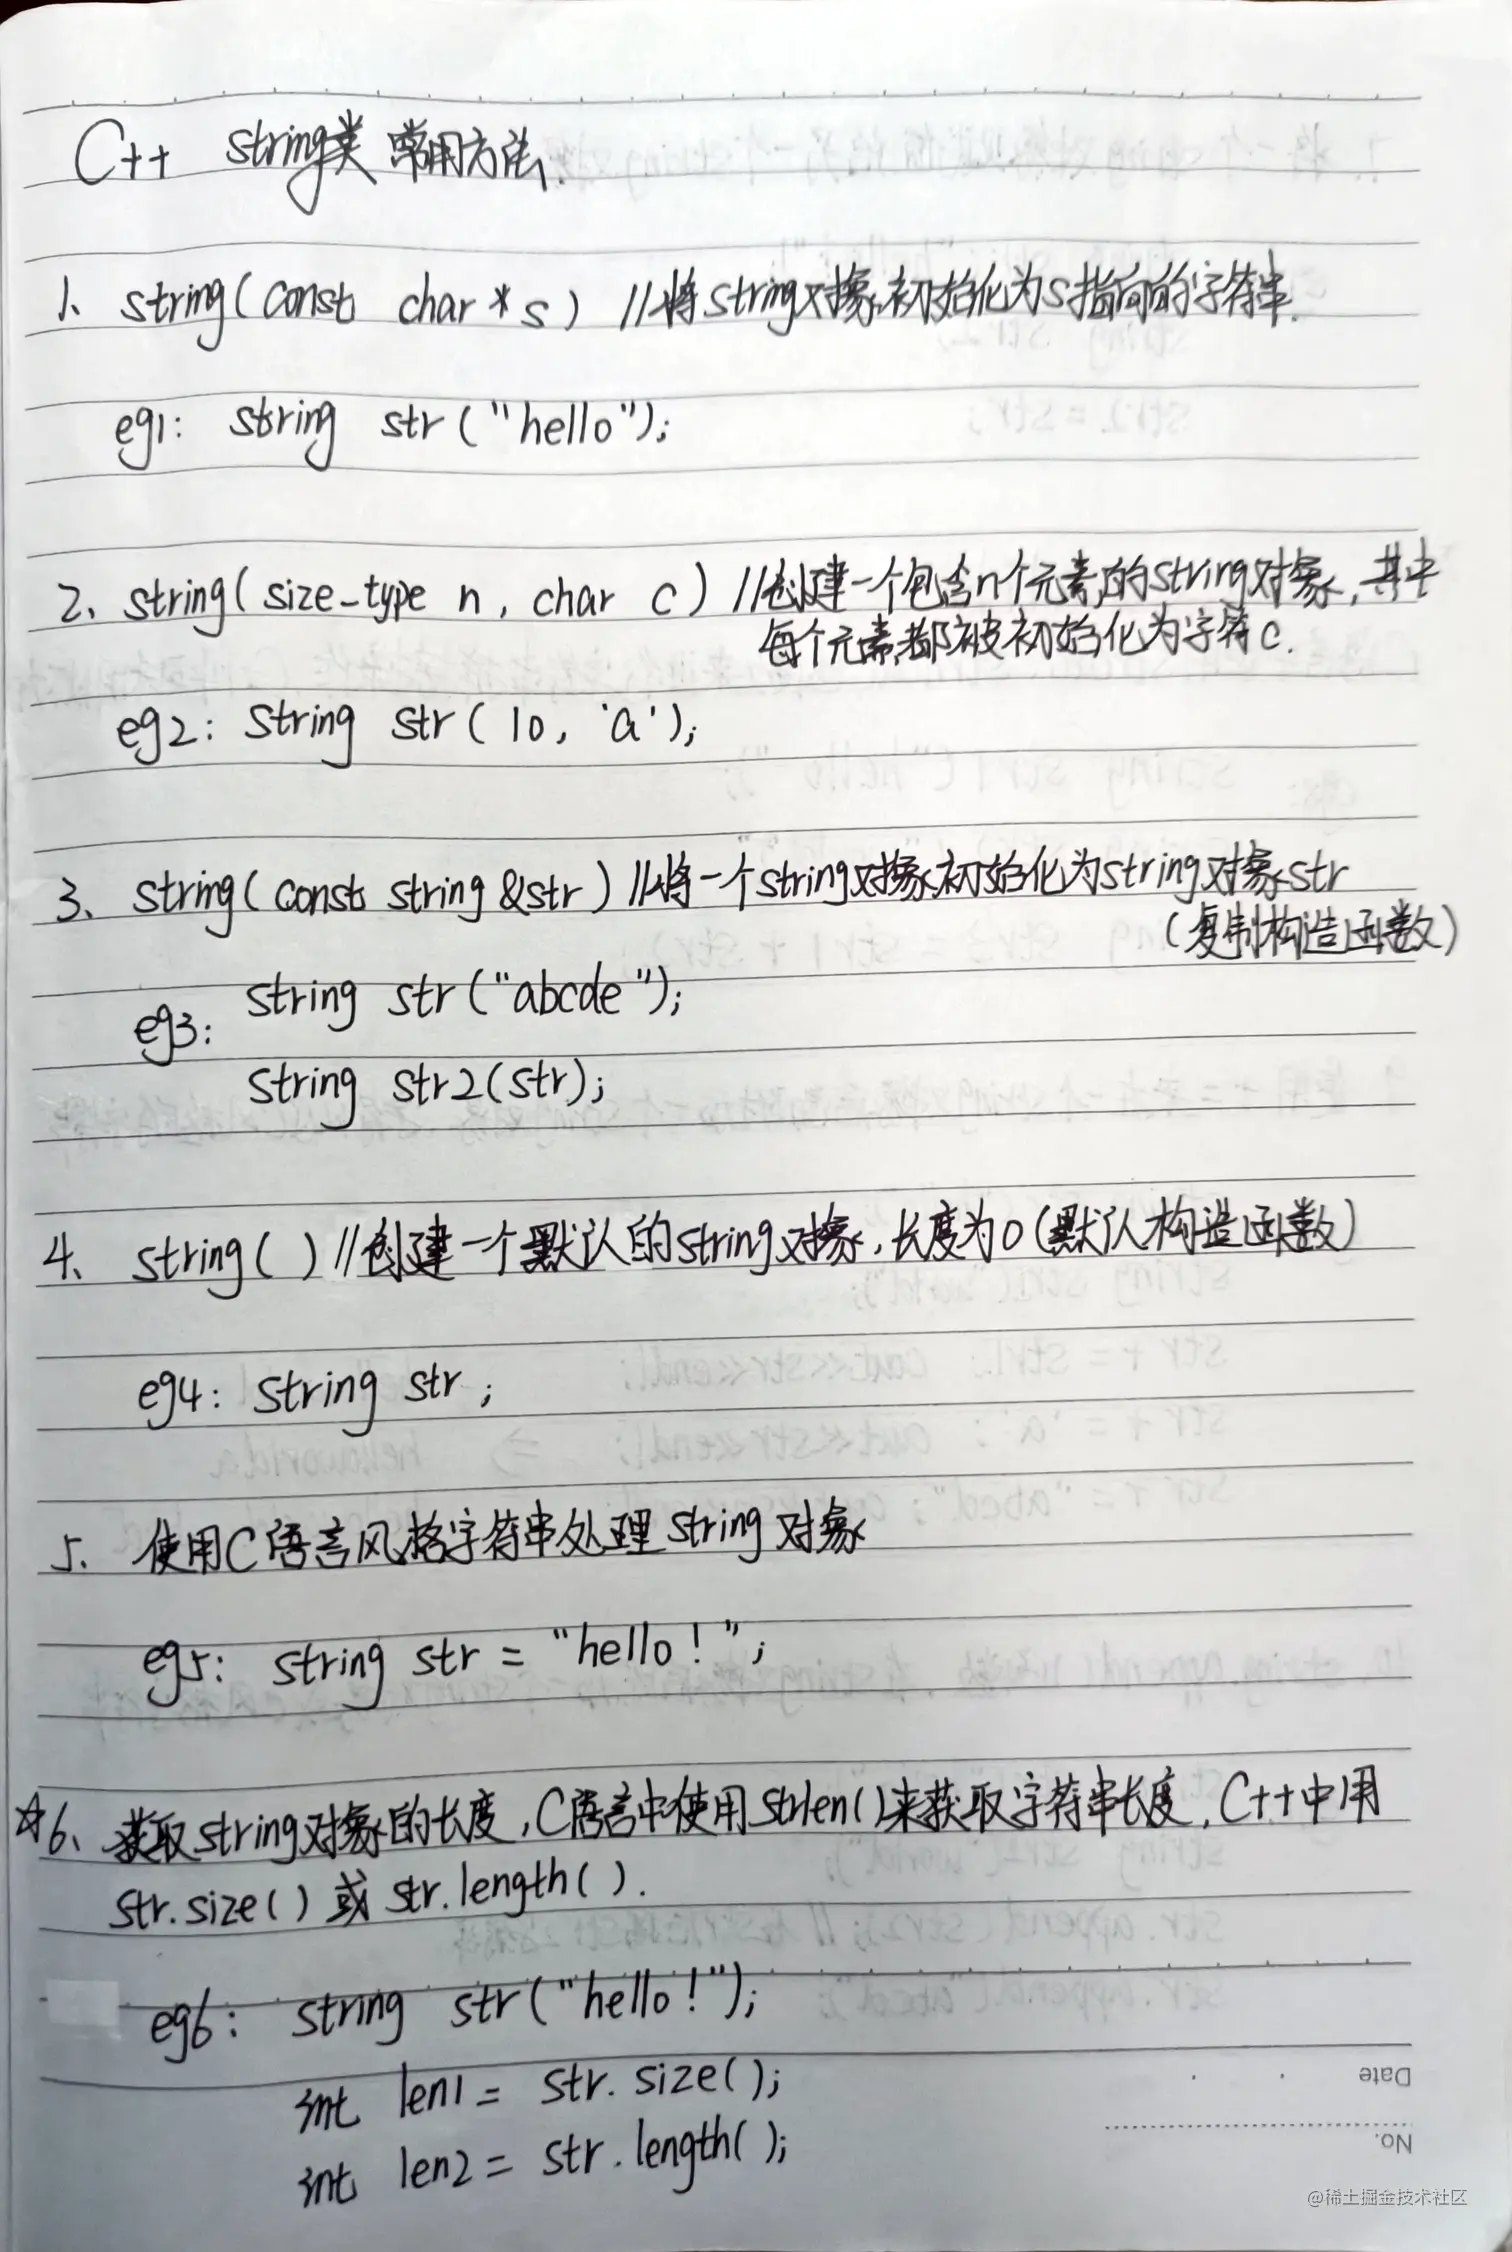 C++ string类 常用方法.
1、string(const char *s) //将string对象初始化为s指向的字符串.
eg1: string str("hello");
2、string(size_type n, char c) //创建一个包含n个元素的string对象, 其中
每个元素都被初始化为字符c.
eg2: string str(10, 'a');
3、string(const string &str) //将一个string对象初始化为string对象str
(复制构造函数)
eg3: string str("abcde");
string str2(str);
4、string() //创建一个默认的string对象, 长度为0(默认构造函数)
eg4: string str;
5、使用C语言风格字符串处理string对象
eg5: string str = "hello!";
☆6、获取string对象的长度, C语言中使用strlen()来获取字符串长度, C++中用
str.size()或str.length().
eg6: string str("hello!");
int len1 = str.size();
int len2 = str.length();
Date
No.
@稀土掘金技术社区